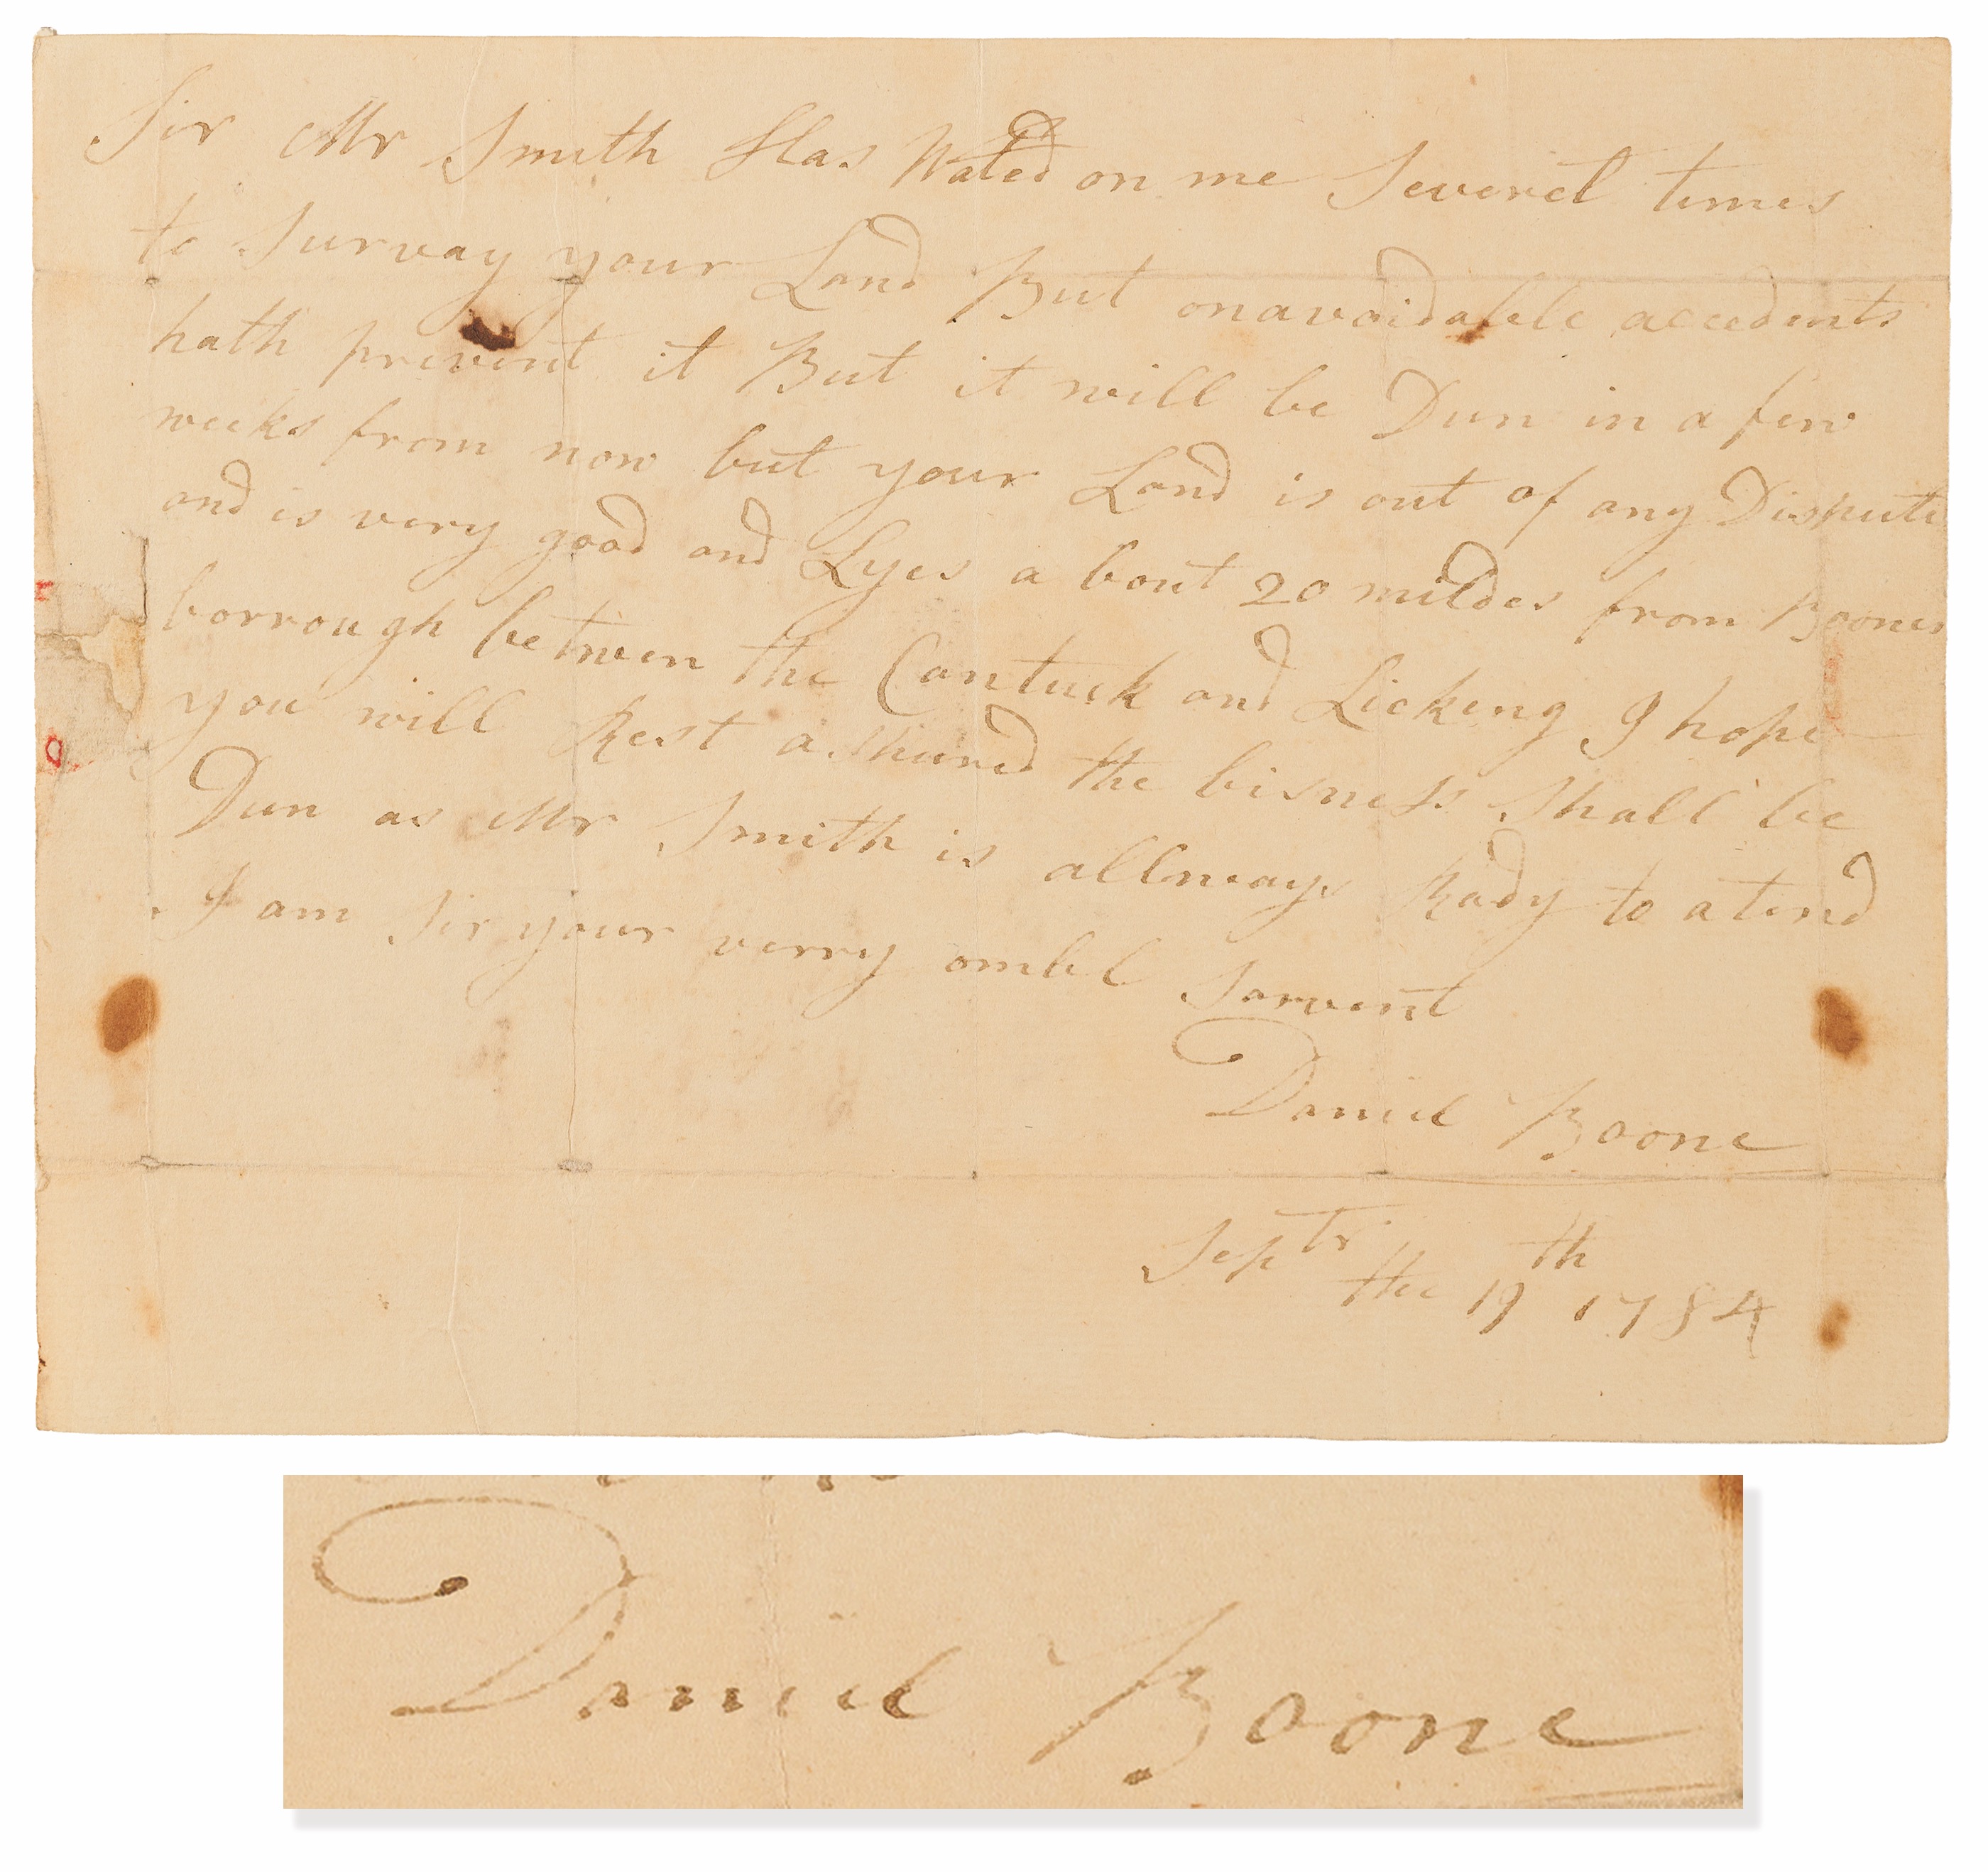 Sir Mr Smith Has Wated on me Severel times
to Survay your Land But onavoidable accedents
hath prevent it But it will be Dun in a few
weeks from now but your Land is out of any Dispute
and is very good and Lyes a bout 20 mildes from Boones
borrough betwen the Cantuck and Licking I hope
you will Rest ashured the bisness Shall be
Dun as Mr Smith is allways Rady to atend
I am Sir your verry ombl Sarvent
Daniel Boone
Septr the 19th 1784
Daniel Boone